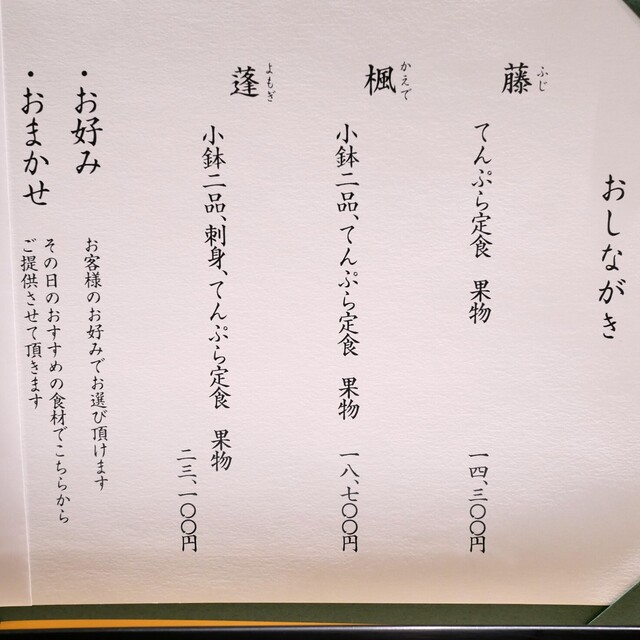 おしながき
藤
ふじ
てんぷら定食 果物
一四、三〇〇円
楓
かえで
小鉢二品、てんぷら定食 果物
一八、七〇〇円
蓬
よもぎ
小鉢二品、刺身、てんぷら定食 果物
二三、一〇〇円
・お好み
お客様のお好みでお選び頂けます
・おまかせ
その日のおすすめの食材でこちらから
ご提供させて頂きます